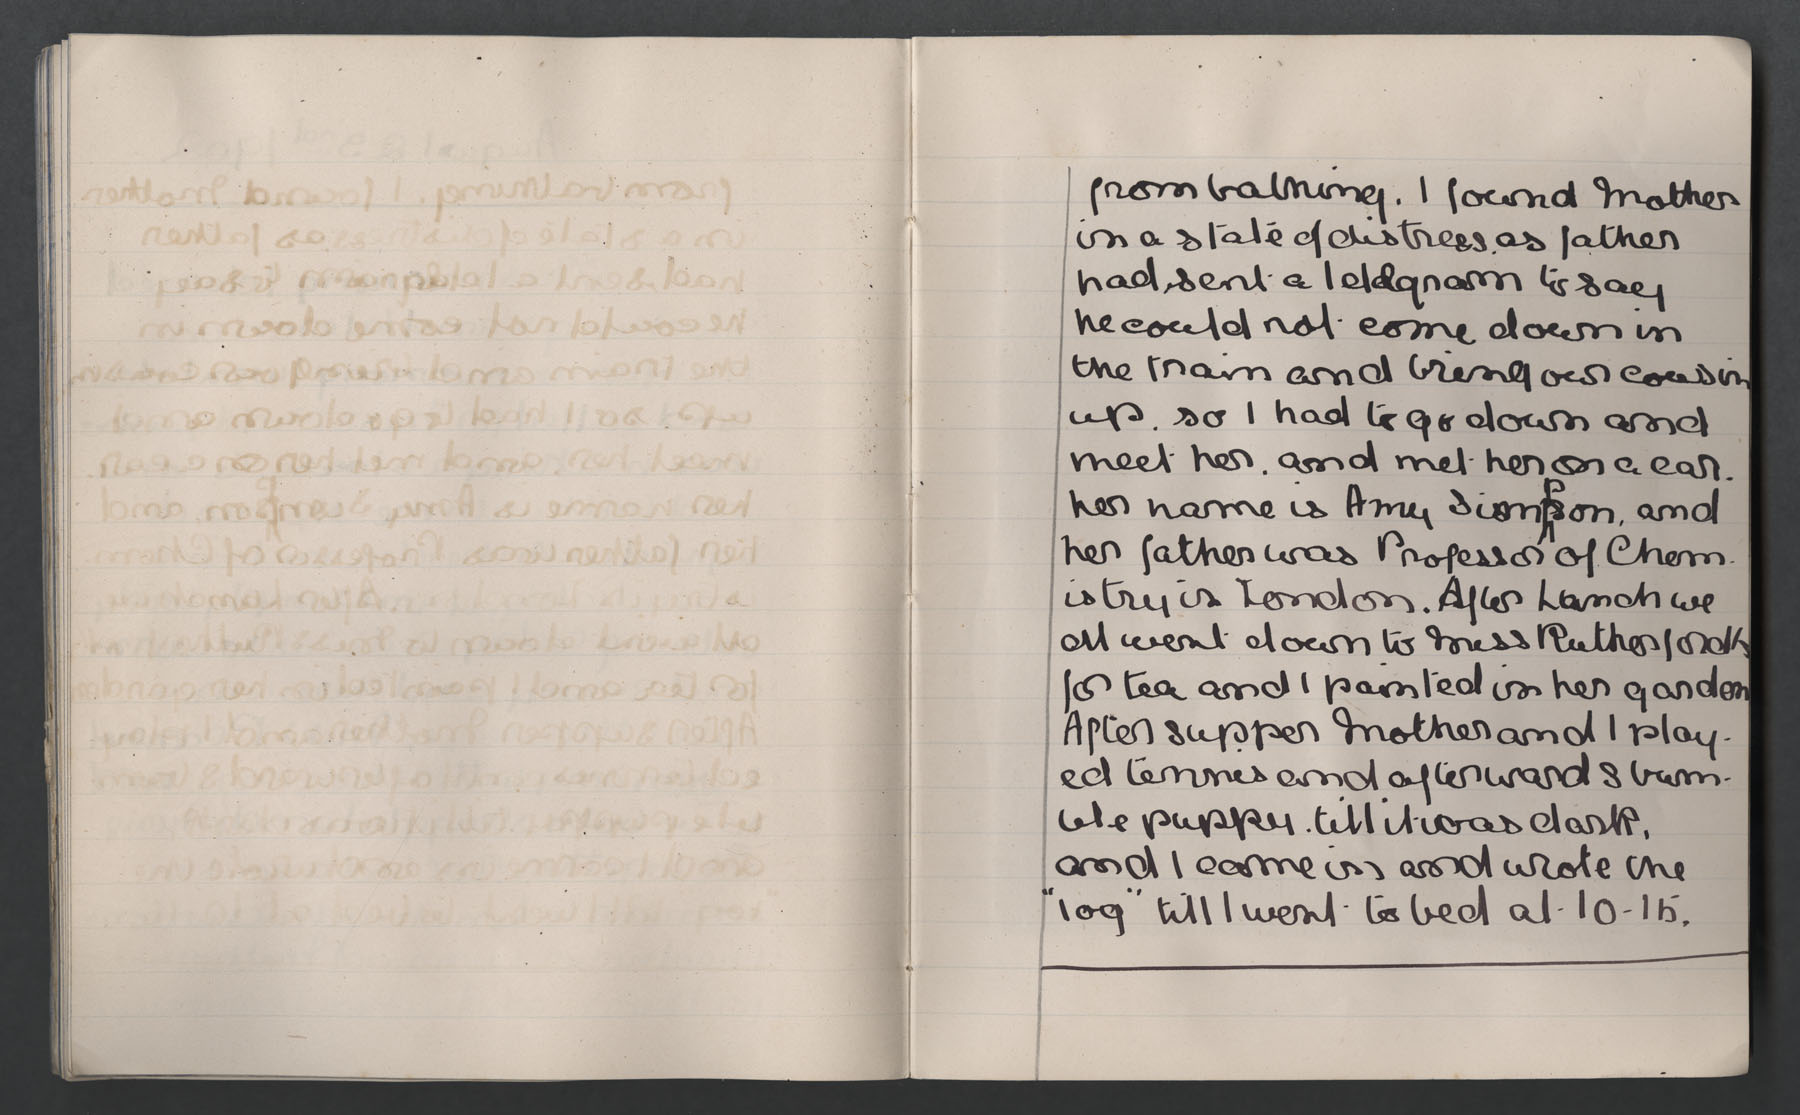 from bathing. I found Mother
in a state of distress as father
had sent a teldgram to say
he could not come down in
the train and bring our cousin
up. so I had to go down and
meet her. and met her on a car.
her name is Amy Simpson, and
her father was Professor of Chem-
istry in London. After Lunch we
all went down to Miss Rutherfords
for tea and I painted in her garden
After supper Mother and I play-
ed tennis and afterwards bum-
ble puppy. till it was dark,
and I came in and wrote the
"log" till I went to bed at 10-15.